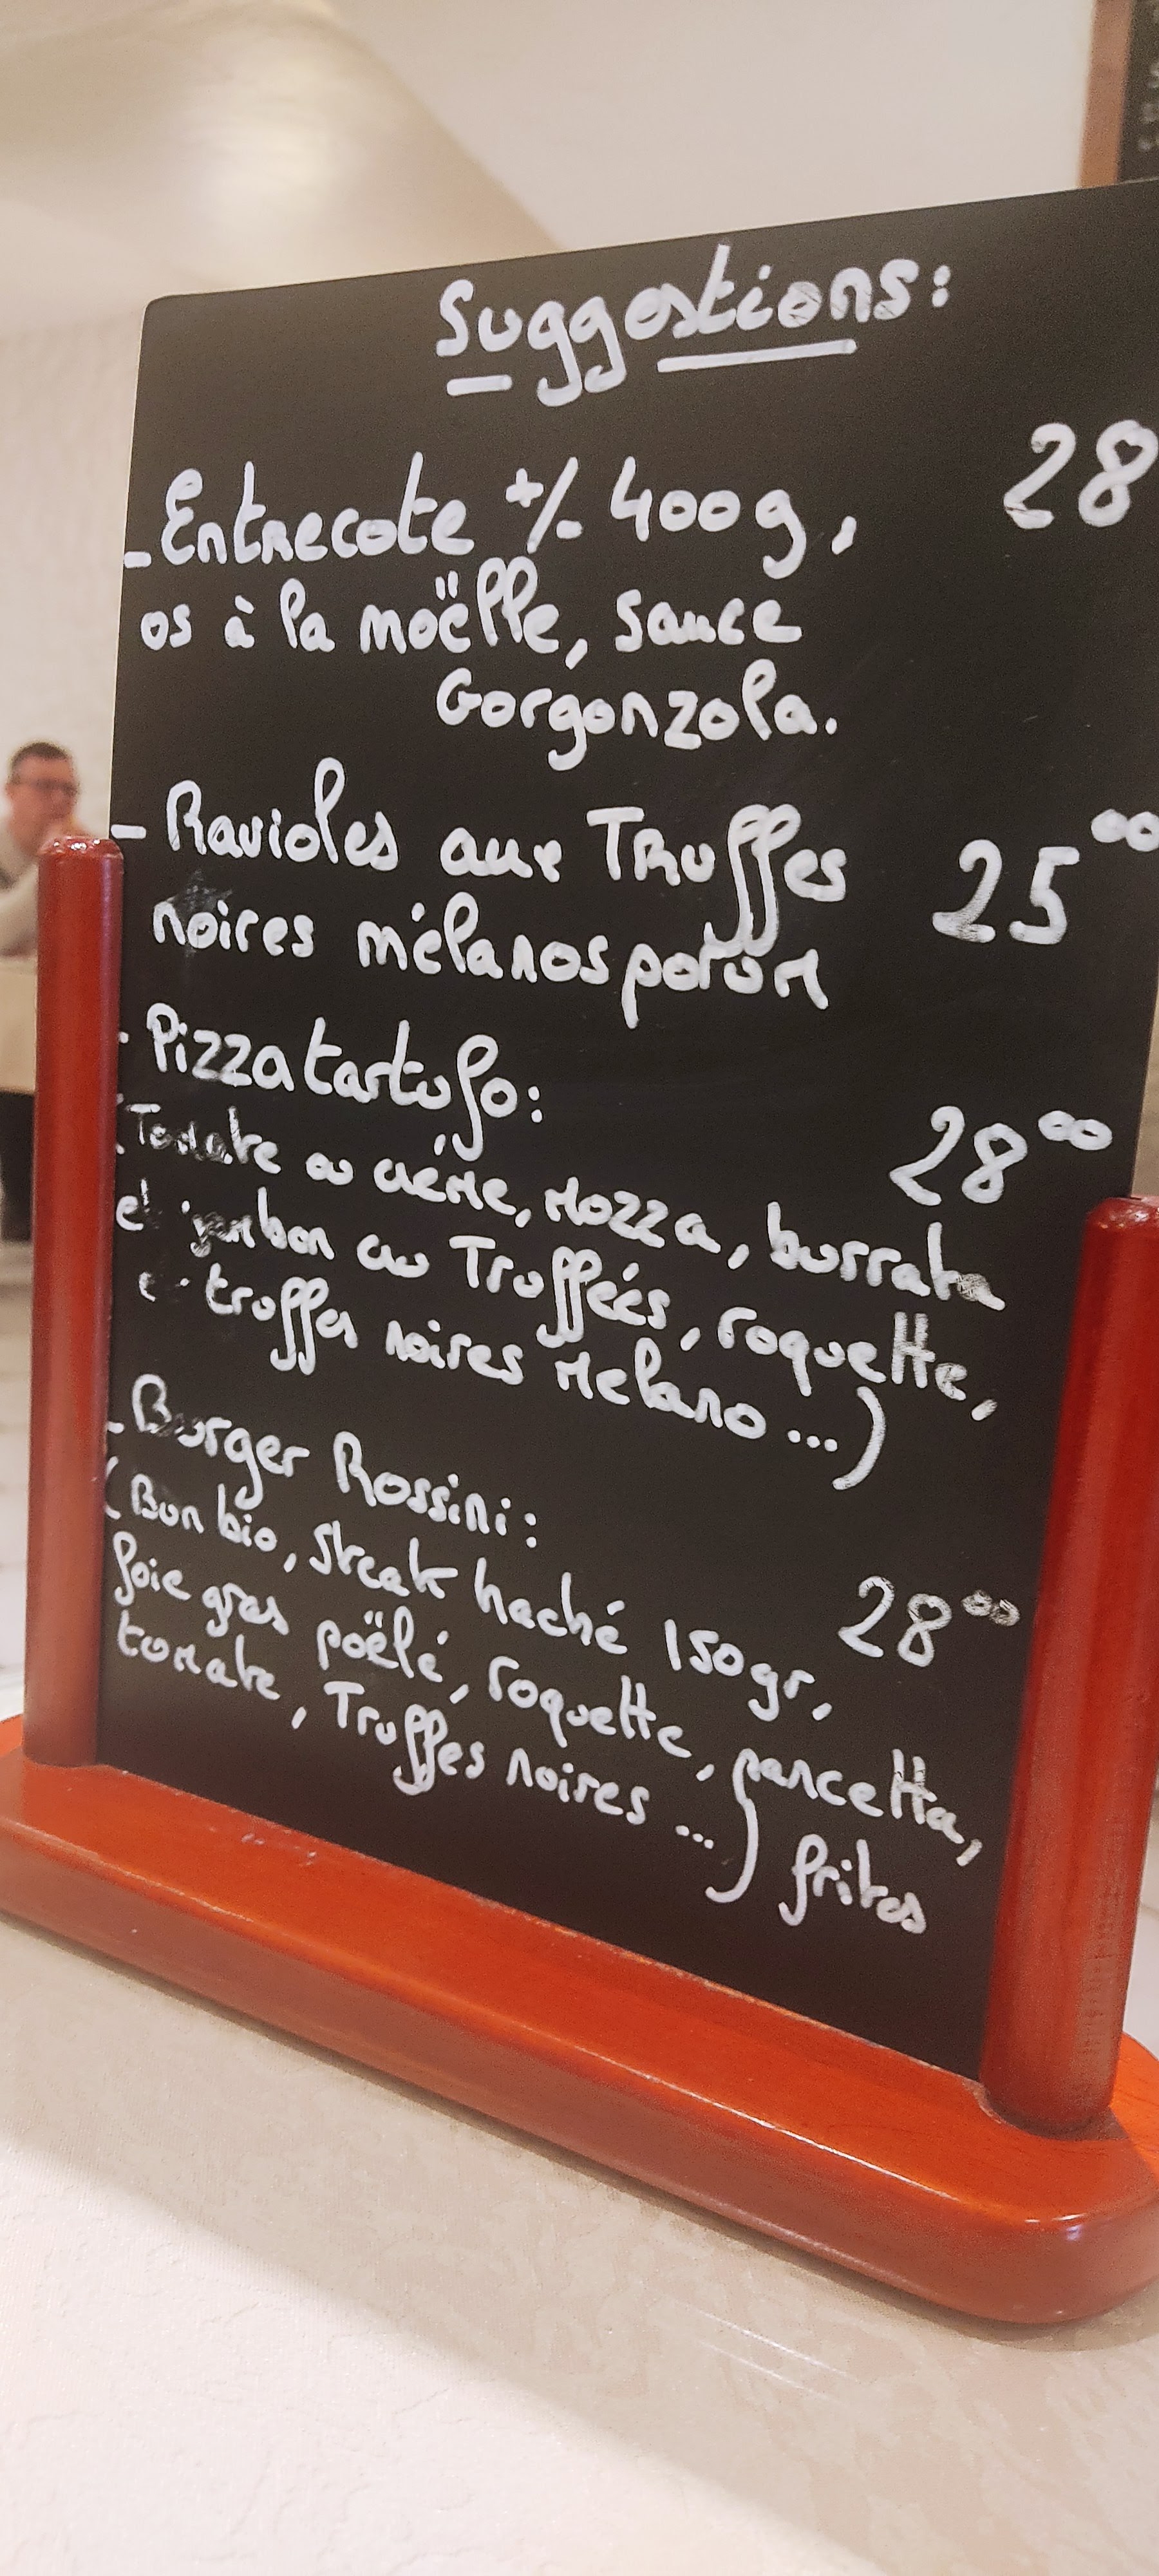 Suggestions:
- Entrecote +/- 400g, 28
os à la moëlle, sauce
Gorgonzola.
- Ravioles aux Truffes 25 00
noires mélanosporum
- Pizza tartufo:
(Tomate ou crème, Mozza, burrata 28 00
et jambon cu Truffées, roquette,
et truffes noires Melano ...)
- Burger Rossini:
(Bun bio, Steak haché 150gr, 28 00
foie gras poëlé, roquette, pancetta,
tomate, Truffes noires ...) frites